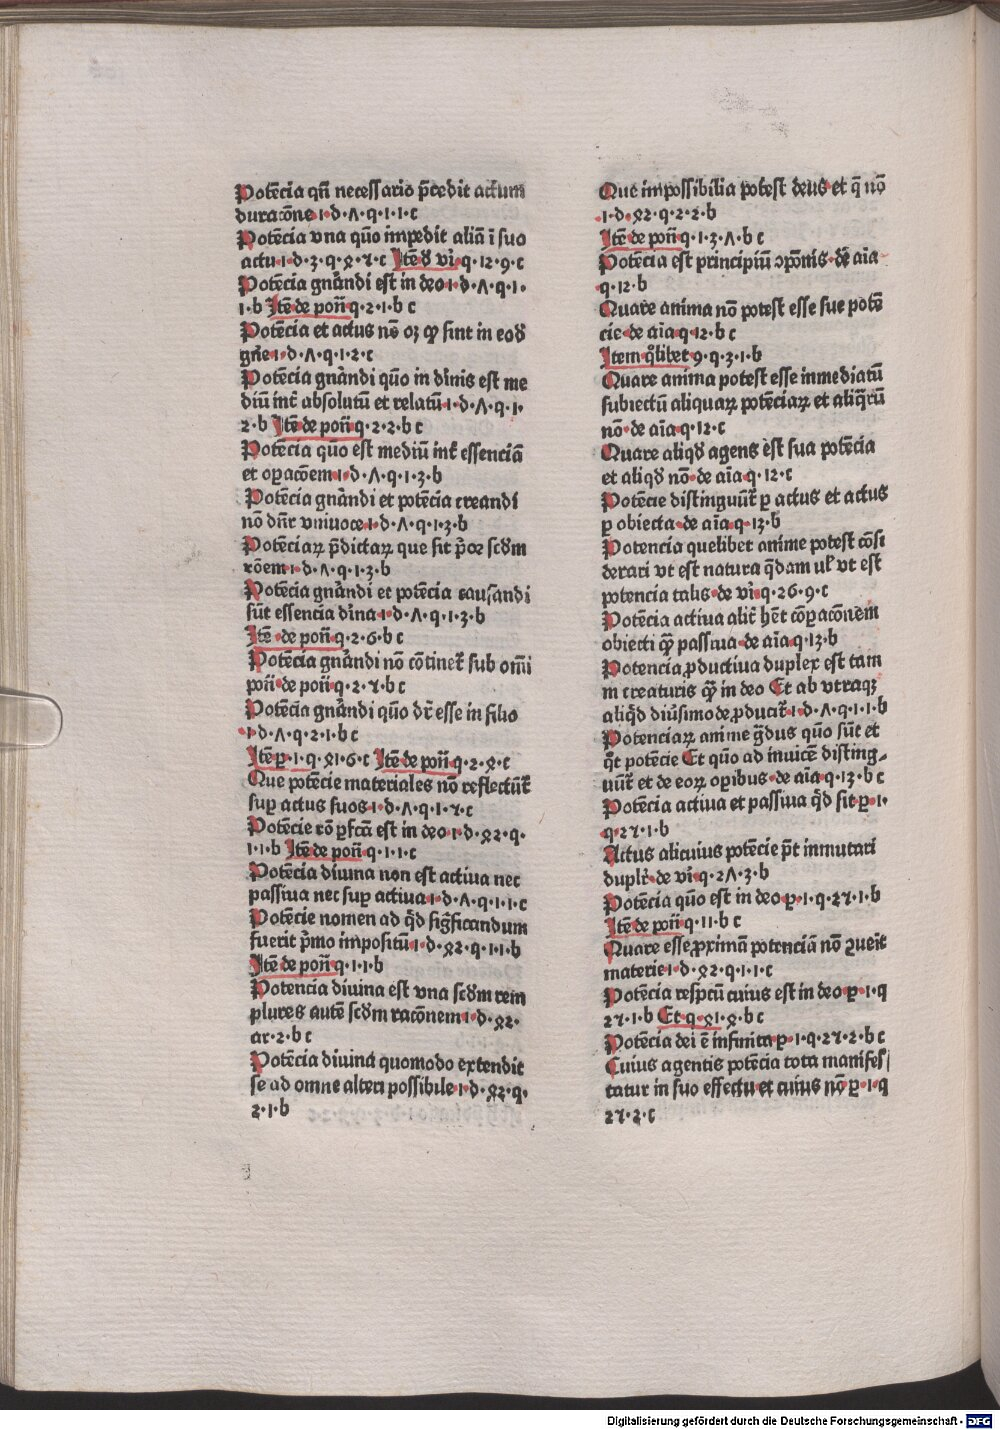 Potēcia qñ necessario p̄cedit actum
duracōne·1·d·ʌ·q·1·1·c
Potēcia vna quō impedit aliā ī suo
actu·1·d·3·q·8·7·c Itē d̄ vī·q·12·9·c
Potēcia gn̄andi est in deo·1·d·ʌ·q·1·
1·b Itē de poñ q·2·1·b c
Potēcia et actus nō
gñe·1·d·ʌ·q·1·2·c
Potēcia gn̄andi quō in dīnis est me
diū int̄ absolutū et relatū·1·d·ʌ·q·1·
2·b Itē de poñ q·2·2·b c
Potēcia quō est mediū int̄ essenciā
et oꝑacōem·1·d·ʌ·q·1·3·b
Potēcia gn̄andi et potēcia creandi
nō dn̄r vniuoce·1·d·ʌ·q·1·3·b
Potēciaꝝ p̄dictaꝝ que sit p̄or scd̄m
rōem·1·d·ʌ·q·1·3·b
Potēcia gn̄andi et potēcia causandi
sūt essencia dīna·1·d·ʌ·q·1·3·b
Itē·de poñ q·2·6·b c
Potēcia gn̄andi nō cōtinet̄ sub omī
poñ·de poñ q·2·7·b c
Potēcia gn̄andi quō dr̄ esse in filio
·1·d·ʌ·q·2·1·b c
Itē ꝑ·1·q·81·6·c Itē de poñ q·2·8·c
Que potēcie materiales nō reflectūt̄
suꝑ actus suos·1·d·ʌ·q·1·7·c
Potēcie rō ꝑfcā est in deo·1·d·82·q·
1·1·b Itē de poñ q·1·1·c
Potēcia diuina non est actiua nec
passiua nec suꝑ actiua·1·d·ʌ·q·1·1·c
Potēcie nomen ad qd̄ sigficandum
fuerit p̄mo impositū·1·d·82·q·1·1·b
Itē de poñ q·1·1·b
Potencia diuina est vna scd̄m rem
plures autē scd̄m racōnem·1·d·82·
ar·2·b c
Potēcia diuina quomodo extendit
se ad omne alteri possibile·1·d·82·q·
2·1·b
Que impossibilia potest deus et q̄ nō
·1·d·82·q·2·2·b
Itē de poñ q·1·3·ʌ·b c
Potēcia est principiū ꝯꝑōnis·de aīa
q·12·b
Quare anima nō potest esse sue potē
cie·de aīa q·12·b c
Item q̊libet 9·q·3·1·b
Quare anima potest esse inmediatū
subiectū aliquaꝝ potēciaꝝ et aliq̄rū
nō·de aīa q·12·c
Quare aliqd̄ agens est sua potēcia
et aliqd̄ nō·de aīa q·12·c
Potēcie distinguūt̄ ꝑ actus et actus
ꝑ obiecta·de aīa q·13·b
Potencia quelibet anime potest cōsi
derari vt est natura q̄dam ul̄ vt est
potencia talis·de vī q·26·9·c
Potēcia actiua alit̄ hēt cōꝑacōnem
obiecti qꝫ passiua·de aīa q·13·b
Potencia ꝓductiua duplex est tam
in creaturis qꝫ in deo Et ab vtraqꝫ
aliqd̄ diūsimode ꝓducit̄·1·d·ʌ·q·1·1·b
Potenciaꝝ anime g̊dus quō sūt et
qt̄ potēcie Et quō ad inuicē disting⸗
uūt̄ et de eoꝝ oꝑibus·de aīa q·13·b c
Potēcia actiua et passiua qd̄ sit ꝑ·1·
q·27·1·b
Actus alicuius potēcie pt̄ inmutari
duplr̄·de vī q·2ʌ·3·b
Potēcia quō est in deo ꝑ·1·q·27·1·b
Itē de poñ q·11·b c
Quare esse ꝓximā potenciā nō ꝯueīt
materie·1·d·82·q·1·1·c
Potēcia respcū cuius est in deo ꝑ·1·q
27·1·b Et q·81·8·b c
Potēcia dei ē infinita ꝑ·1·q·27·2·b c
Cuius agentis potēcia tota manifes/
tatur in suo effectu et cuius nō ꝑ·1·q
27·2·c
Digitalisierung gefördert durch die Deutsche Forschungsgemeinschaft - DFG